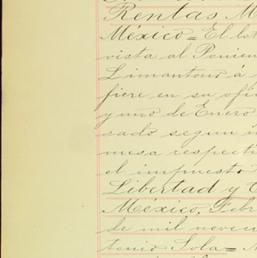 Rentas M
México = El lot
vista al Ponien
Limantour á
fiere en su ofi
y uno de Enero
sado segun in
mesa respecti
el impuesto
Libertad y C
México, Febr
de mil novecie
tonio Sola =